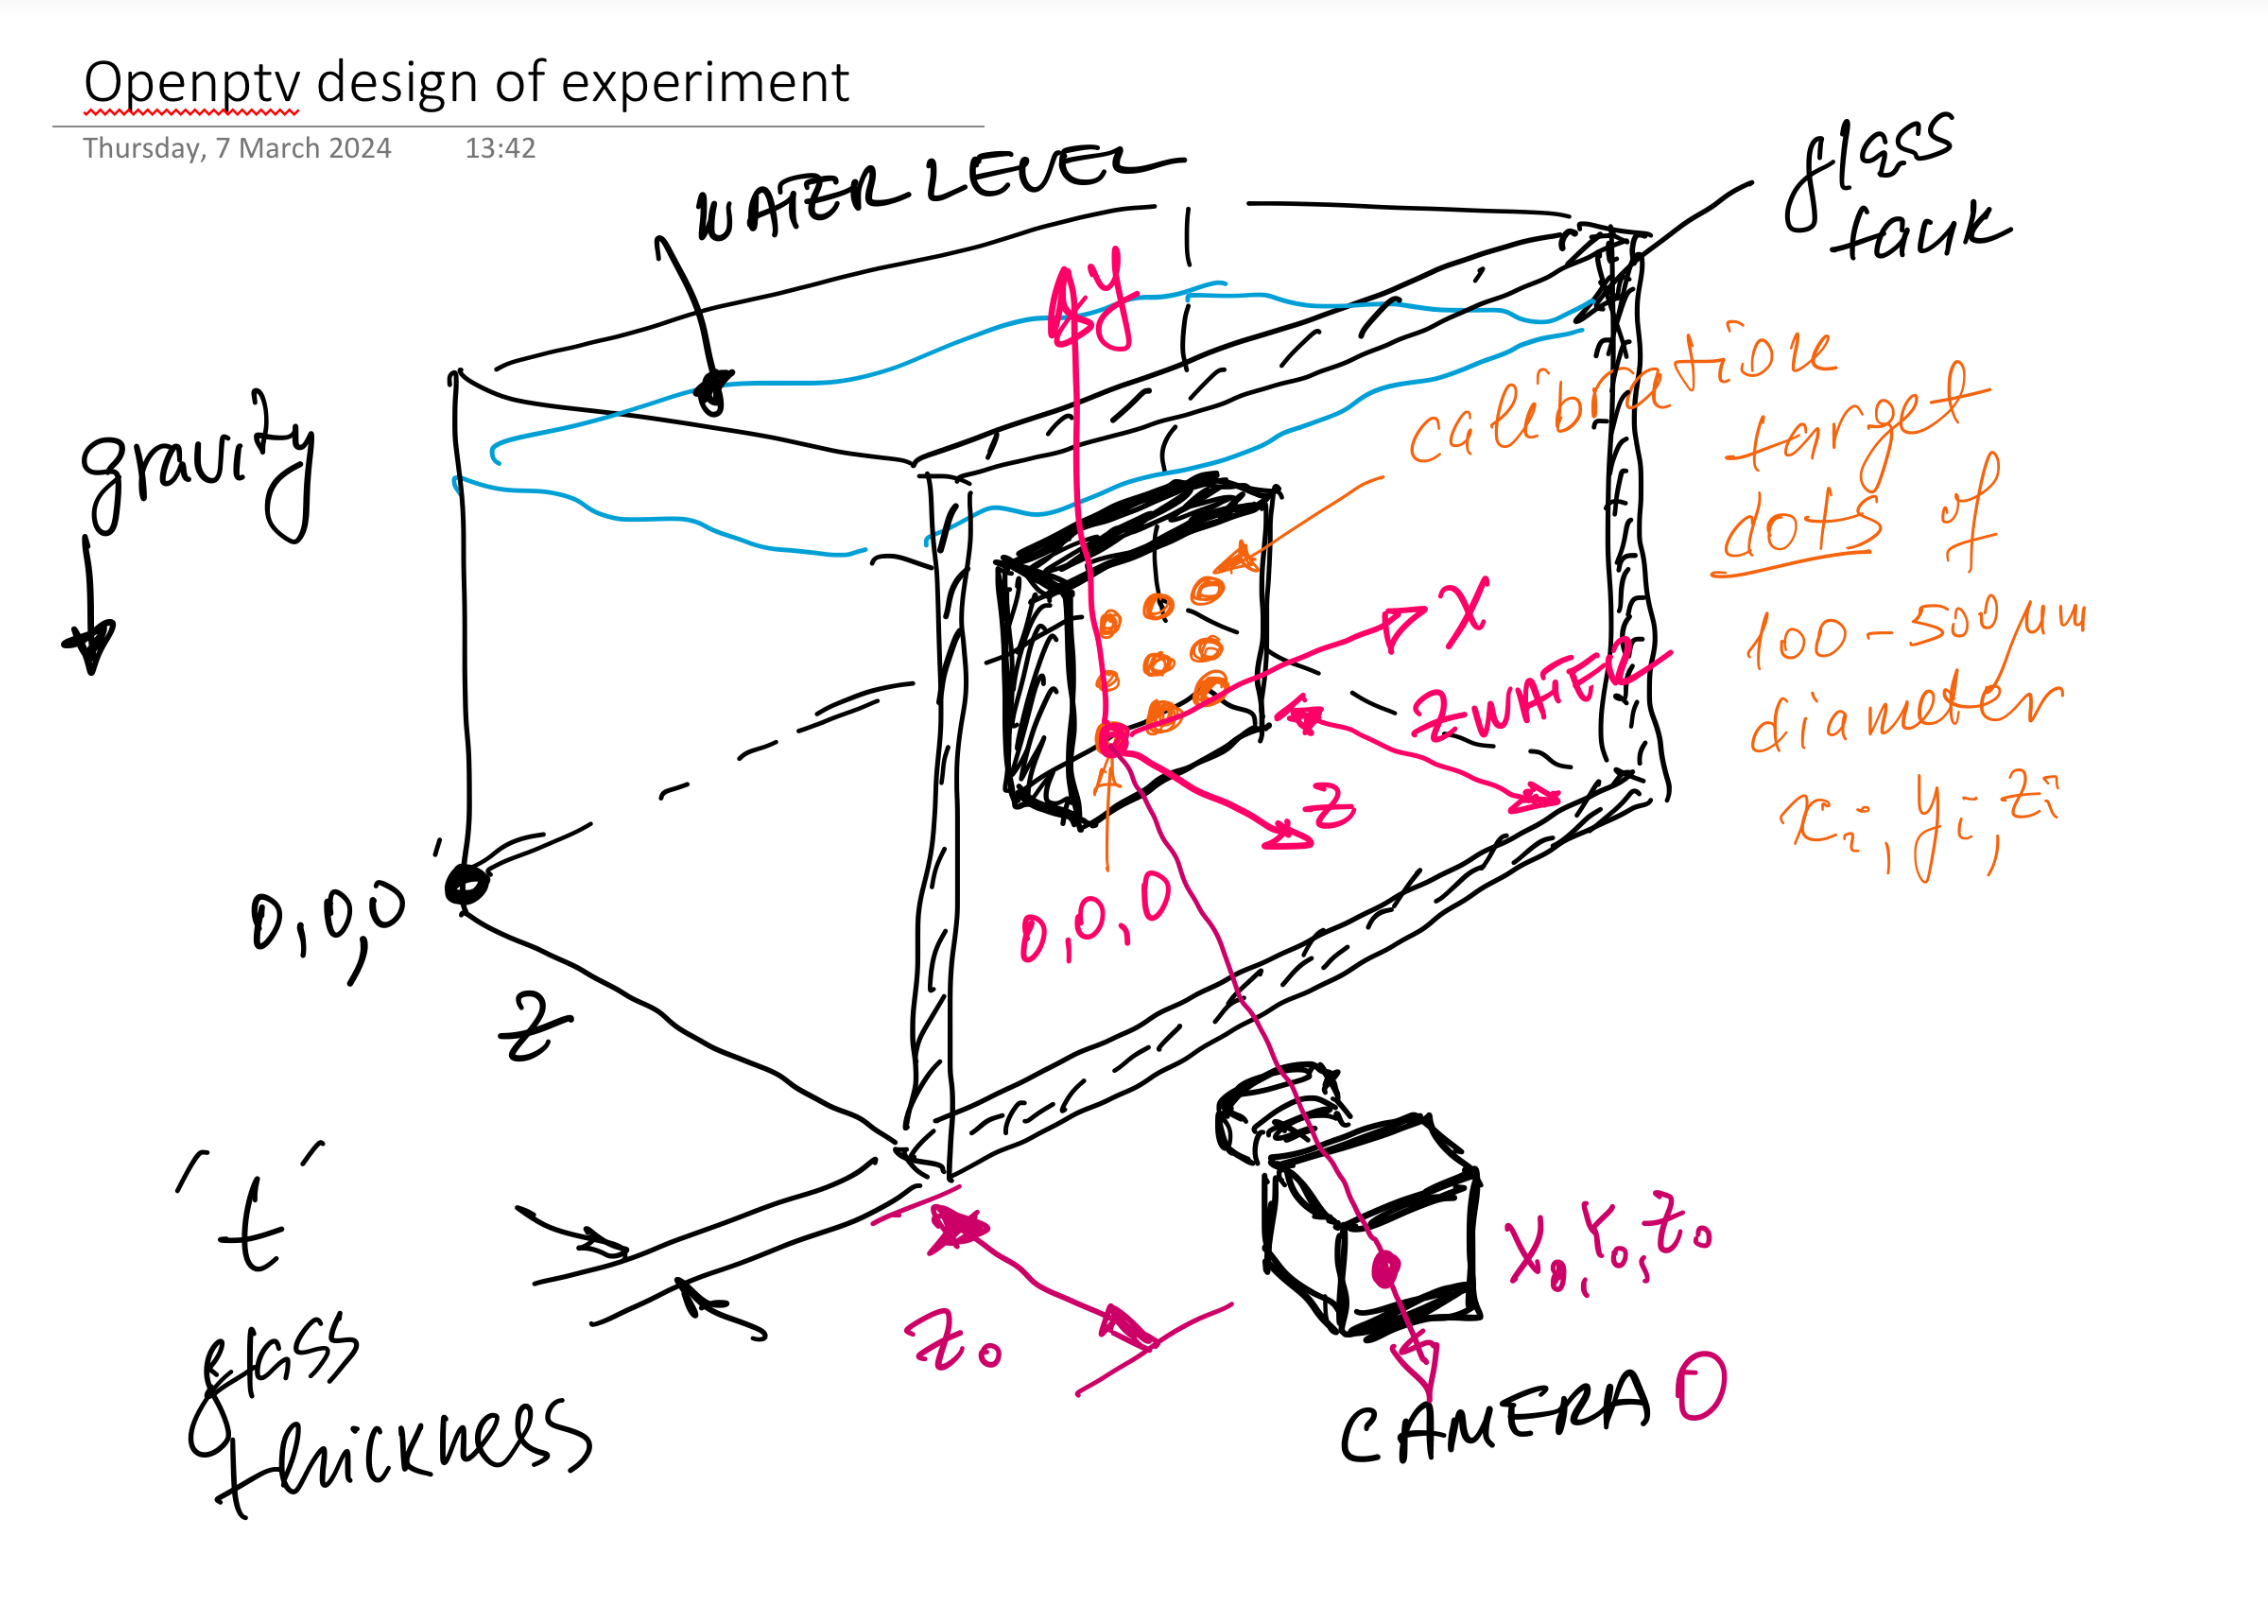 Openptv design of experiment
Thursday, 7 March 2024 13:42
WATER LEVEL
glass
tank
gravity
y
calibration
target
dots of
100-500 μm
diameter
xi, yi, zi
X
ZWATER
z
0,0,0
0,0,0
z
"t"
glass
thickness
z0
X0, Y0, Z0
CAMERA 0